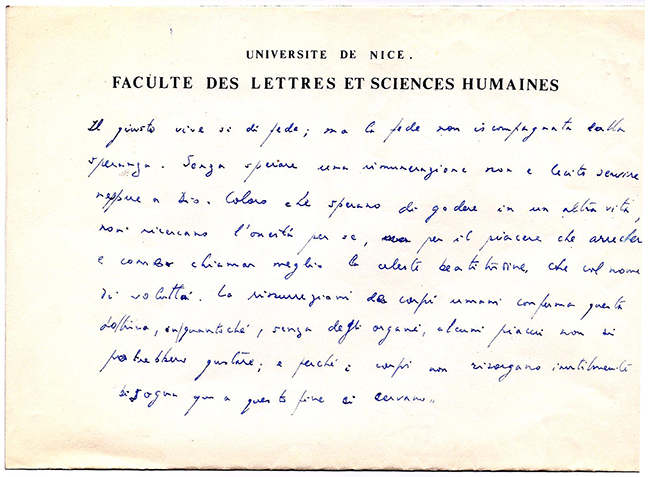 UNIVERSITE DE NICE.
FACULTE DES LETTRES ET SCIENCES HUMAINES
Il giusto vive si di fede; ma la fede non iscompagnata dalla
speranza. Senza sperare una rimunerazione non e lecito servire
neppure a Dio. Coloro che sperano di godere in un altra vita,
non ricercano l'onestà per se, per il piacere che
e chiamar meglio la celeste beatitudine, che col nome
di voluttà. La risurrezioni corpi umani conferma questa
dottrina, senza degli organi, alcuni piaceri non si
potrebbero gustare; e perché i corpi non risorgano inutilmente
bisogna a questo fine si servano"